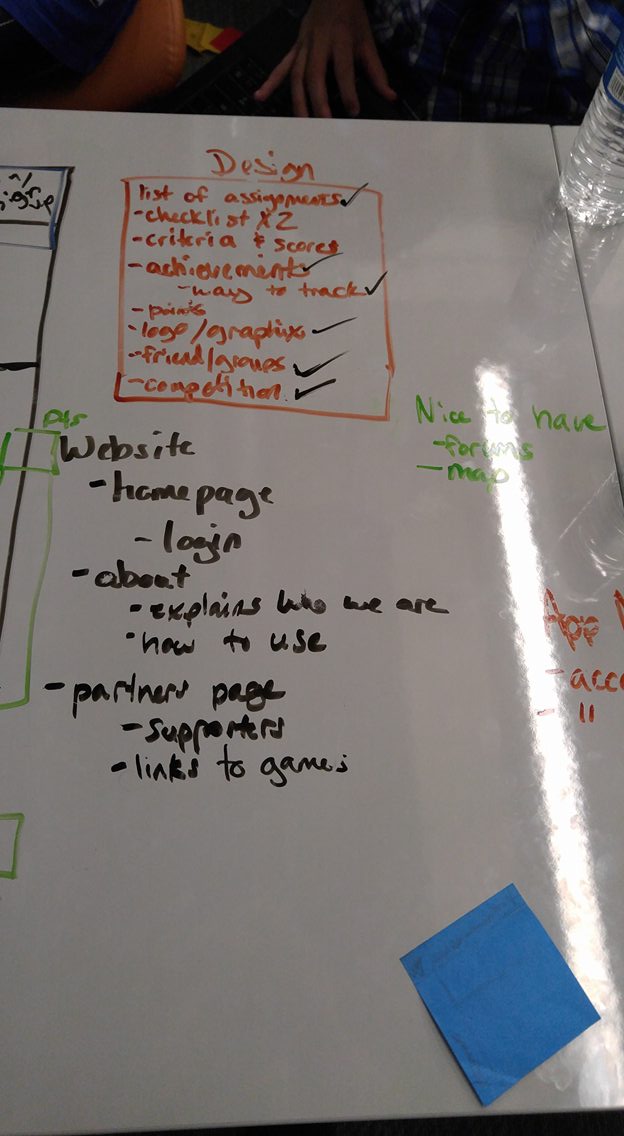 Design
list of assignments ✓
-checklist x2
-criteria & scores
-achievements ✓
-way to track ✓
-points
-logo/graphix ✓
-friend/groups ✓
-competition ✓
Nice to have
-forums
-map
pts
Website
-homepage
-login
-about
-explains who we are
-how to use
-partners page
-supporters
-links to games
App
-acco
- "